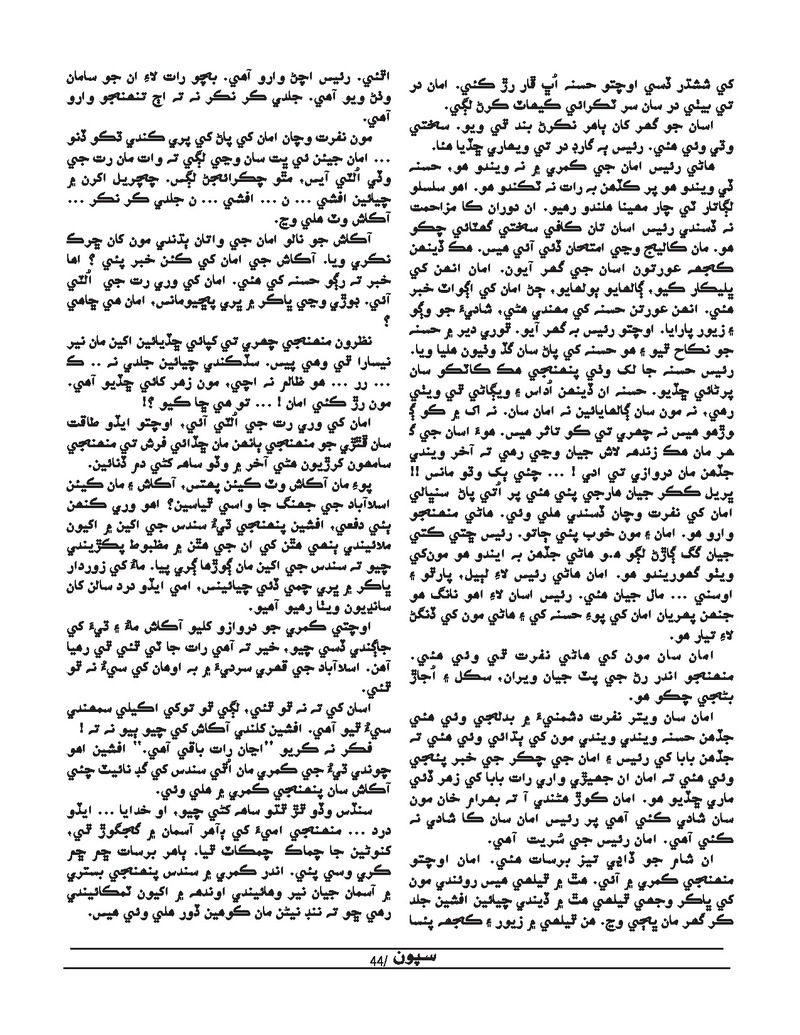 کي ششدر ڏسي اوچتو حسنه اُڀ ڦار رڙ ڪئي. امان در
تي بيٺي در سان سر ٽڪرائي ڪيهاٽ ڪرڻ لڳي.
اسان جو گهر کان ٻاهر نڪرڻ بند ٿي ويو. سختي
وڌي وئي هئي. رئيس ٻه گارڊ در تي ويهاري ڇڏيا هئا.
هاڻي رئيس امان جي ڪمري ۾ نه ويندو هو، حسنه
ڏي ويندو هو پر ڪڏهن به رات نه ٽڪندو هو. اهو سلسلو
لڳاتار ٽي چار مهينا هلندو رهيو. ان دوران ڪا مزاحمت
نه ڏسندي رئيس اسان تان ڪافي سختي گهٽائي چڪو
هو. مان ڪاليج وڃي امتحان ڏئي آئي هيس. هڪ ڏينهن
ڪجهه عورتون اسان جي گهر آيون. امان انهن کي
ڀليڪار ڪيو، ڳالهايو ٻولهايو، ڄڻ امان کي اڳواٽ خبر
هئي. انهن عورتن حسنه کي مهندي هڻي، شاديءَ جو وڳو
۽ زيور پارايا. اوچتو رئيس به گهر آيو. ٿوري دير ۾ حسنه
جو نڪاح ٿيو ۽ هو حسنه کي پاڻ سان گڏ وٺيون هليا ويا.
رئيس حسنه جا لک وٺي پنهنجي هڪ ڪاٽڪو سان
پرڻائي ڇڏيو. حسنه ان ڏينهن اُداس ۽ ويڳاڻي ٿي ويٺي
رهي، نه مون سان ڳالهايائين نه امان سان. نه اک ۾ ڪو ڳ
وڙهو هيس نه چهري تي ڪو تاثر هيس. هوءَ اسان جي گ
هر مان هڪ زندهه لاش جيان وڃي رهي ته آخر ويندي
جڏهن مان دروازي تي ادي ! ... چئي ٻک وڌو مانس !!
ڀريل ڪڪر جيان هارجي پئي هئي پر اُتي پاڻ سنڀالي
امان کي نفرت وچان ڏسندي هلي وئي. هاڻي منهنجو
وارو هو. امان ۽ مون خوب پئي ڄاتو. رئيس ڇتي ڪتي
جيان گگ ڳاڙڻ لڳو هـو هاڻي جڏهن به ايندو هو مون‌کي
ويٺو گهوريندو هو. امان هاڻي رئيس لاءِ لٻيل، ٻارڻو ۽
اوسني ... مال جيان هئي. رئيس اسان لاءِ اهو نانگ هو
جنهن پهريان امان کي پوءِ حسنه کي ۽ هاڻي مون کي ڏنگڻ
لاءِ تيار هو.
امان سان مون کي هاڻي نفرت ٿي وئي هئي.
منهنجو اندر رڻ جي پٽ جيان ويران، سڪل ۽ اُجاڙ
بڻجي چڪو هو.
امان سان ويتر نفرت دشمنيءَ ۾ بدلجي وئي هئي
جڏهن حسنه ويندي ويندي مون کي ٻڌائي وئي هئي ته
جڏهن بابا کي رئيس ۽ امان جي چڪر جي خبر پئجي
وئي هئي ته امان ان جهيڙي واري رات بابا کي زهر ڏئي
ماري ڇڏيو هو. امان ڪوڙ هڻندي آ ته بهرام خان مون
سان شادي ڪئي آهي پر رئيس امان سان ڪا شادي نه
ڪئي آهي. امان رئيس جي سُريت آهي.
ان شام جو ڏاڍي تيز برسات هئي. امان اوچتو
منهنجي ڪمري ۾ آئي. هٿ ۾ ٿيلهي هيس روئندي مون
کي ڀاڪر وجهي ٿيلهي هٿ ۾ ڏيندي چيائين افشين جلد
ڪر گهر مان ڀڄي وڃ. هن ٿيلهي ۾ زيور ۽ ڪجهه پئسا
اٿئي. رئيس اچڻ وارو آهي. بچو رات لاءِ ان جو سامان
وٺڻ ويو آهي. جلدي ڪر نڪر نه ته اڄ تنهنجو وارو
آهي.
مون نفرت وچان امان کي پاڻ کي پري ڪندي ڌڪو ڏنو
... امان جيئن ئي ڀت سان وڃي لڳي ته وات مان رت جي
وڏي اُلٽي آيس، مٿو چڪرائجڻ لڳس. چچريل اکرن ۾
چيائين افشي ... ن ... افشي ... ن جلدي ڪر نڪر ...
آڪاش وٽ هلي وڃ.
آڪاش جو نالو امان جي واتان ٻڌندي مون کان ڇرڪ
نڪري ويا. آڪاش جي امان کي ڪئن خبر پئي ؟ اها
خبر ته رڳو حسنه کي هئي. امان کي وري رت جي اُلٽي
آئي. ڊوڙي وڃي ڀاڪر ۾ ڀري پڇيومانس، امان هي ڇاهي
؟
نظرون منهنجي چهري تي کپائي ڇڏيائين اکين مان نير
نيسارا ٿي وهي پيس. سڏڪندي چيائين جلدي نه .. ڪ
... رر ... هو ظالم نه اچي، مون زهر کائي ڇڏيو آهي.
مون رڙ ڪئي امان ! ... تو هي ڇا ڪيو ؟!
امان کي وري رت جي اُلٽي آئي، اوچتو ايڏو طاقت
سان ڦٿڙي جو منهنجي ٻانهن مان ڇڏائي فرش تي منهنجي
سامهون ڪرڙيون هڻي آخر ۾ وڏو ساهه کڻي دم ڏنائين.
پوءِ مان آڪاش وٽ ڪيئن پهتس، آڪاش ۽ مان ڪيئن
اسلاآباد جي جهنگ جا واسي ٿياسين؟ اهو وري ڪنهن
ٻئي دفعي، افشين پنهنجي ڌيءُ سندس جي اکين ۾ اکيون
ملائيندي ٻنهي هٿن کي ان جي هٿن ۾ مظبوط پڪڙيندي
چيو ته سندس جي اکين مان ڳوڙها ڳري پيا. ماءُ کي زوردار
ڀاڪر ۾ ڀري چمي ڏئي چيائينس، امي ايڏو درد سالن کان
سانڍيون ويٺا رهيو آهيو.
اوچتي ڪمري جو دروازو کليو آڪاش ماءُ ۽ ڌيءَ کي
جاڳندي ڏسي چيو، خير ته آهي رات جا ٽي ٿئي ٿي رهيا
آهن. اسلاآباد جي قهري سرديءَ ۾ به اوهان کي سيءُ نه ٿو
ٿئي.
اسان کي ته نه ٿو ٿئي، لڳي ٿو توکي اڪيلي سمهندي
سيءُ ٿيو آهي. افشين کلندي آڪاش کي چيو ٻيو نه ته !
فڪر نه ڪريو ’’اڃان رات باقي آهي.‘‘ افشين اهو
چوندي ڌيءُ جي ڪمري مان اُٿي سندس کي گڊ نائيٽ چئي
آڪاش سان پنهنجي ڪمري ۾ هلي وئي.
سنڌس وڏو ٿڙ ٿڌو ساهه کڻي چيو، او خدايا ... ايڏو
درد ... منهنجي اميءَ کي ٻاهر آسمان ۾ گجگوڙ ٿي،
کنوڻين جا چماڪ چمڪاٽ ٿيا. ٻاهر برسات ڇم ڇم
ڪري وسي پئي. اندر ڪمري ۾ سندس پنهنجي بستري
۾ آسمان جيان نير وهائيندي اونڌهه ۾ اکيون ٽمڪائيندي
رهي ڇو ته ننڊ نيڻن مان ڪوهين ڏور هلي وئي هيس.
سپون /44